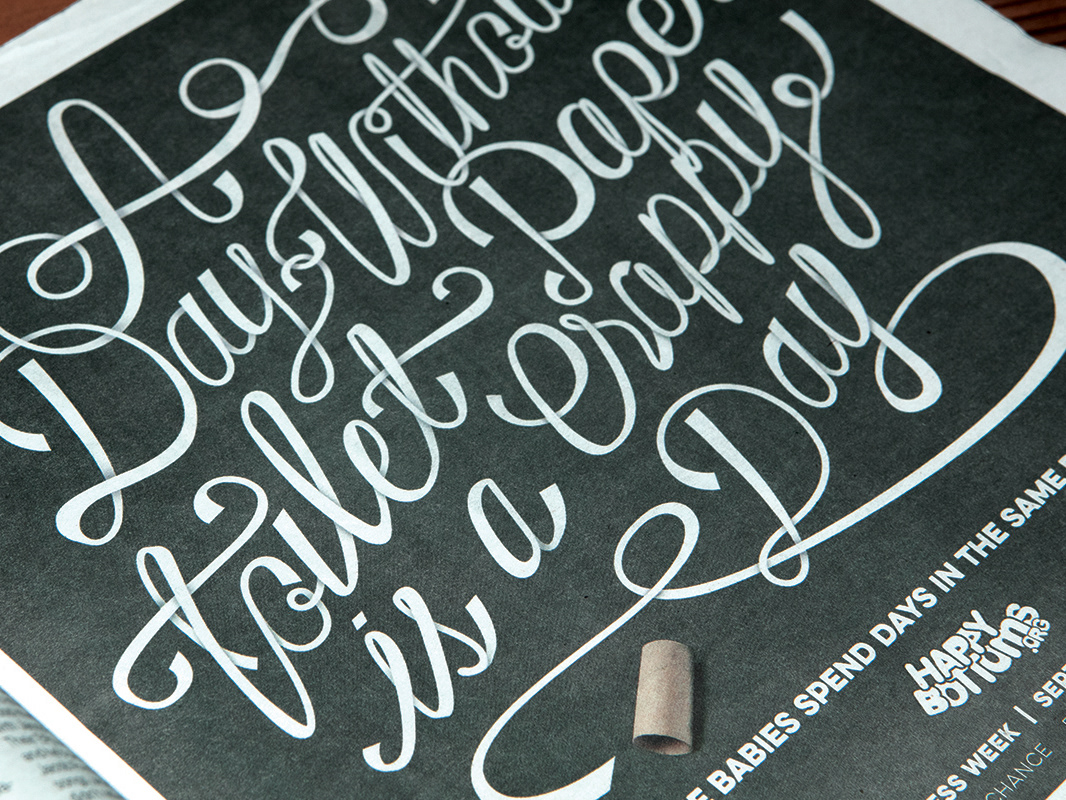 A
Day Withou
toilet Pape
is a Crappy
Day
E BABIES SPEND DAYS IN THE SAME
HAPPY
BOTTOMS
.ORG
ESS WEEK | SER
CHANCE